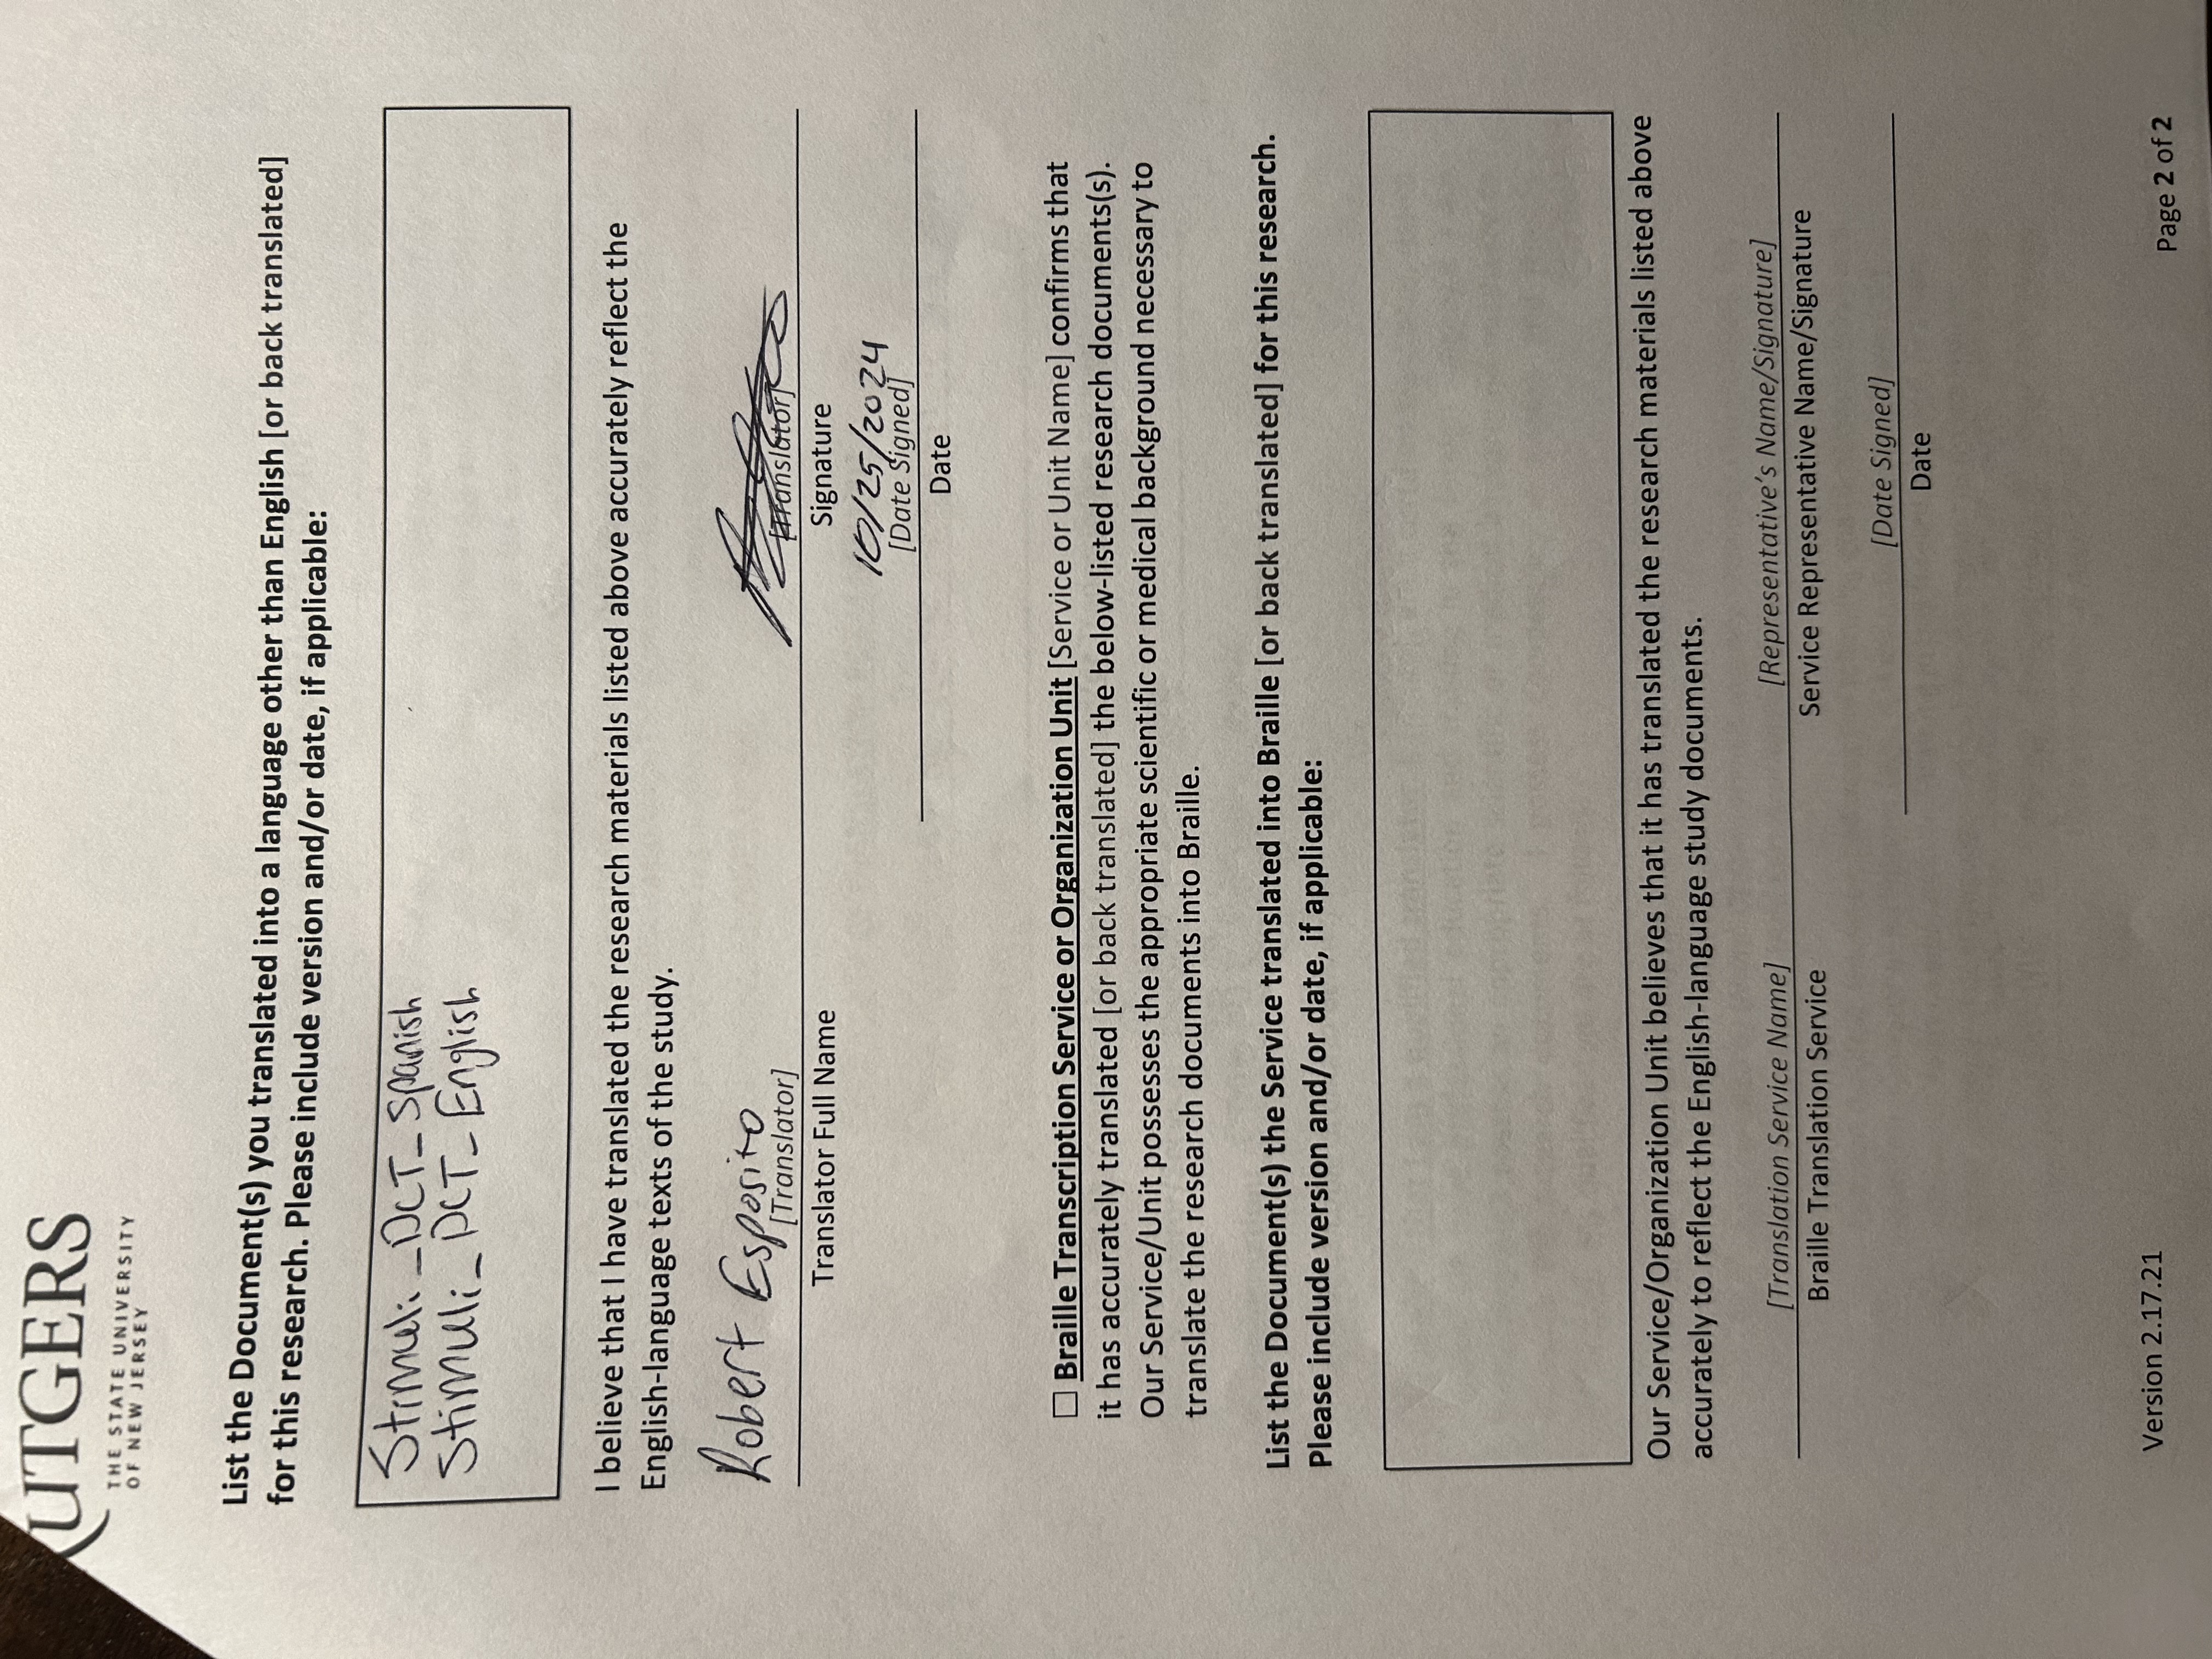 RUTGERS
THE STATE UNIVERSITY
OF NEW JERSEY
List the Document(s) you translated into a language other than English [or back translated]
for this research. Please include version and/or date, if applicable:
Stimuli_DCT_Spanish
Stimuli_DCT_English
I believe that I have translated the research materials listed above accurately reflect the
English-language texts of the study.
Robert Esposito
[Translator] [Translator]
Translator Full Name Signature
10/25/2024
[Date Signed]
Date
☐ Braille Transcription Service or Organization Unit [Service or Unit Name] confirms that
it has accurately translated [or back translated] the below-listed research documents(s).
Our Service/Unit possesses the appropriate scientific or medical background necessary to
translate the research documents into Braille.
List the Document(s) the Service translated into Braille [or back translated] for this research.
Please include version and/or date, if applicable:
Our Service/Organization Unit believes that it has translated the research materials listed above
accurately to reflect the English-language study documents.
[Translation Service Name] [Representative's Name/Signature]
Braille Translation Service Service Representative Name/Signature
[Date Signed]
Date
Version 2.17.21 Page 2 of 2